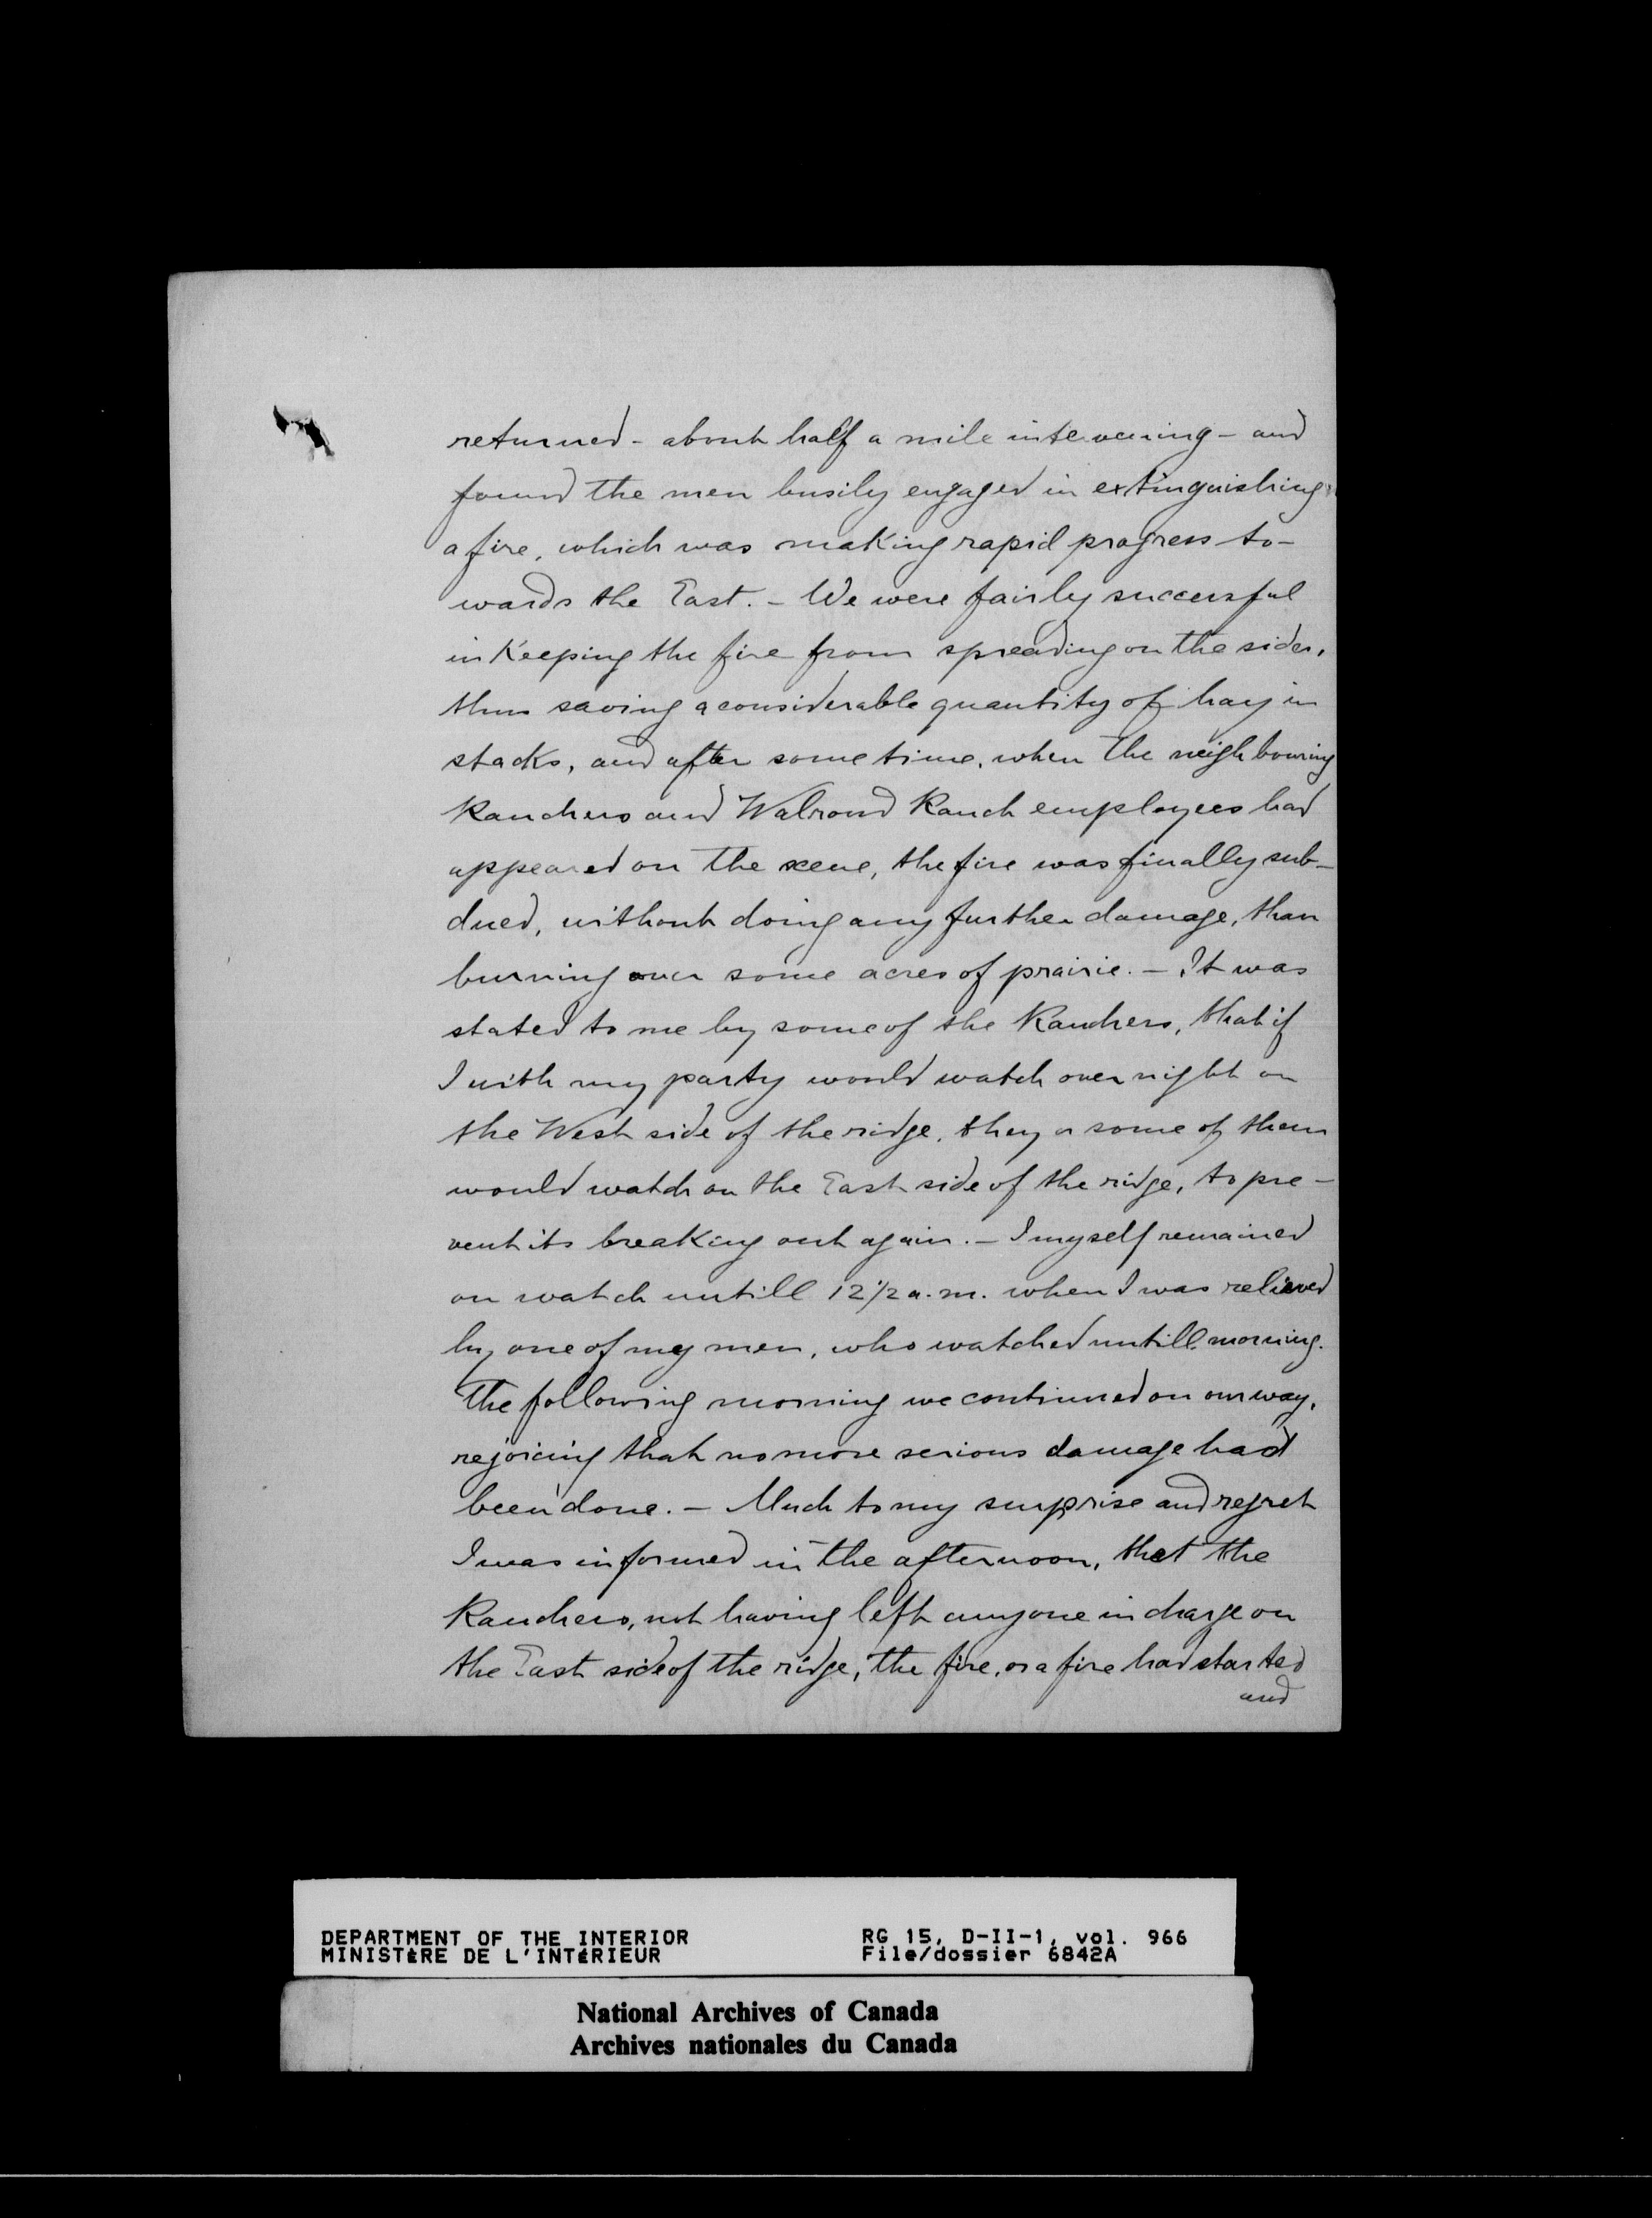 returned - about half a mile intervening - and
found the men busily engaged in extinguishing
a fire, which was making rapid progress to-
wards the East. - We were fairly successful
in Keeping the fire from spreading on the sides,
thus saving a considerable quantity of hay in
stacks, and after some time, when the neighbouring
Ranchers and Walrond Ranch employees had
appeared on the scene, the fire was finally sub-
dued, without doing any further damage, than
burning over some acres of prairie. - It was
stated to me by some of the Ranchers, that if
I with my party would watch over night on
the West side of the ridge, they or some of them
would watch on the East side of the ridge, to pre-
vent its breaking out again. - I myself remained
on watch untill 12 1/2 a.m. when I was relieved
by one of my men, who watched untill morning.
The following morning we continued on our way,
rejoicing that no more serious damage had
been done. - Much to my surprise and regret
I was informed in the afternoon, that the
Ranchers, not having left anyone in charge on
the East side of the ridge, the fire, or a fire had started
and
DEPARTMENT OF THE INTERIOR RG 15, D-II-1, vol. 966
MINISTÈRE DE L'INTÉRIEUR File/dossier 6842A
National Archives of Canada
Archives nationales du Canada